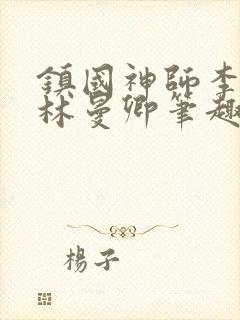 鎮國神師李
林曼卿筆趣
楊子